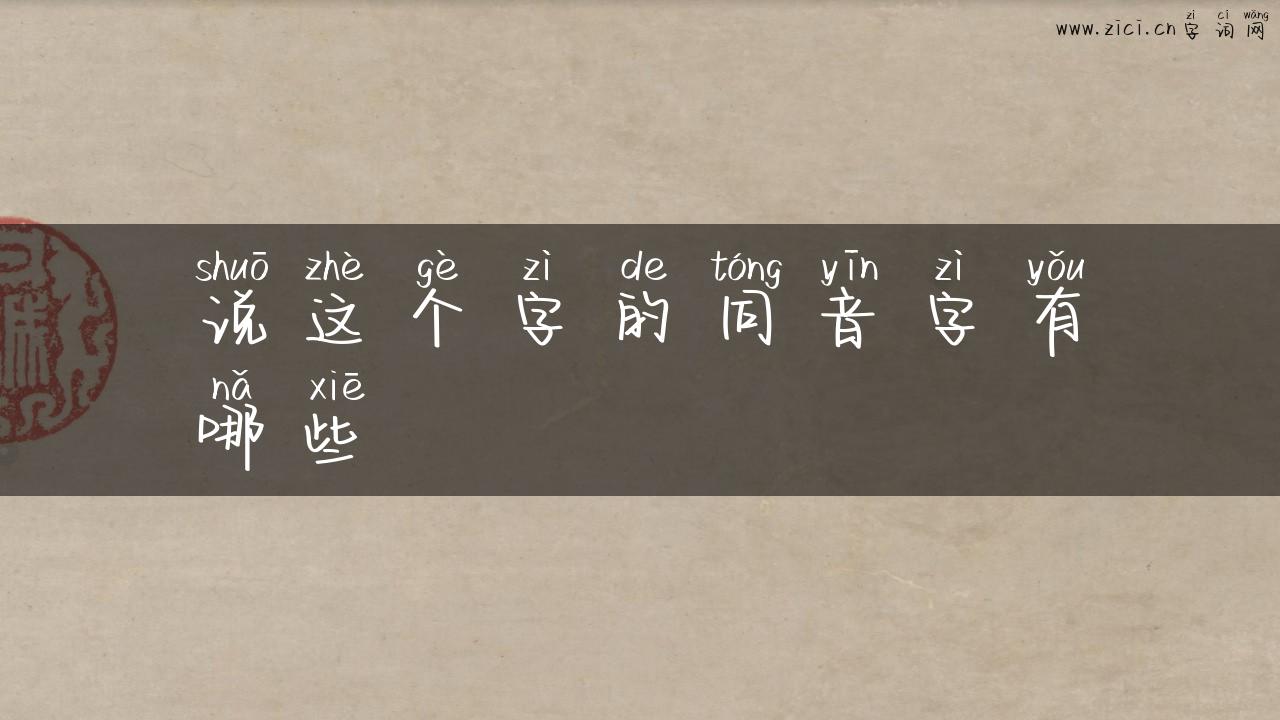 zì cí wǎng
www.zici.cn 字词网
shuō zhè gè zì de tóng yīn zì yǒu
说这个字的同音字有
nǎ xiē
哪些